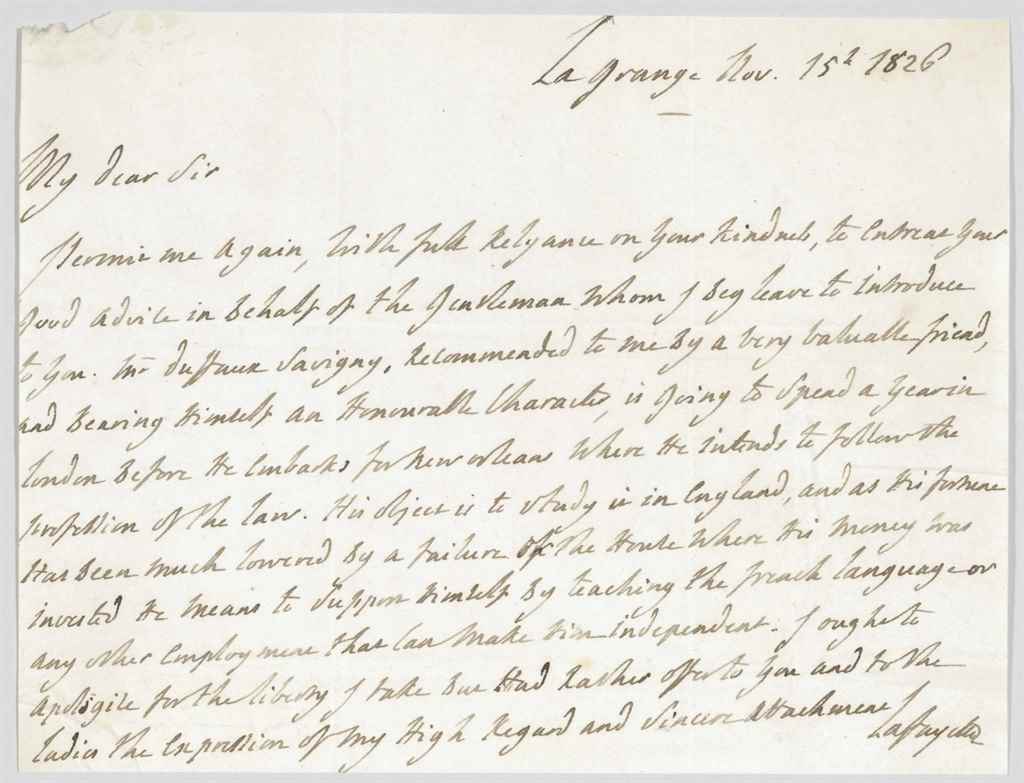 La Grange Nov. 15h 1826
My dear Sir
Permit me Again, With full Relyance on Your Kindness, to Entreat Your
Good Advice in Behalf of the Gentleman Whom I Beg leave to Introduce
to You. Mr Duffaux Savigny, Recommended to me By a Very Valuable friend,
and Bearing Himself an Honourable Character, is Going to Spend a Year in
London Before He Embarks for New orleans Where He intends to follow the
profession of the law. His object is to Study it in England, and as His fortune
Has Been Much lowered By a failure of the House Where His Money Was
invested He Means to Support Himself By teaching the french language or
any other Employment that Can Make Him independent. I ought to
Apologize for the liberty I take But Had Rather offer to You and to the
ladies the Expression of My High Regard and Sincere Attachment
Lafayette